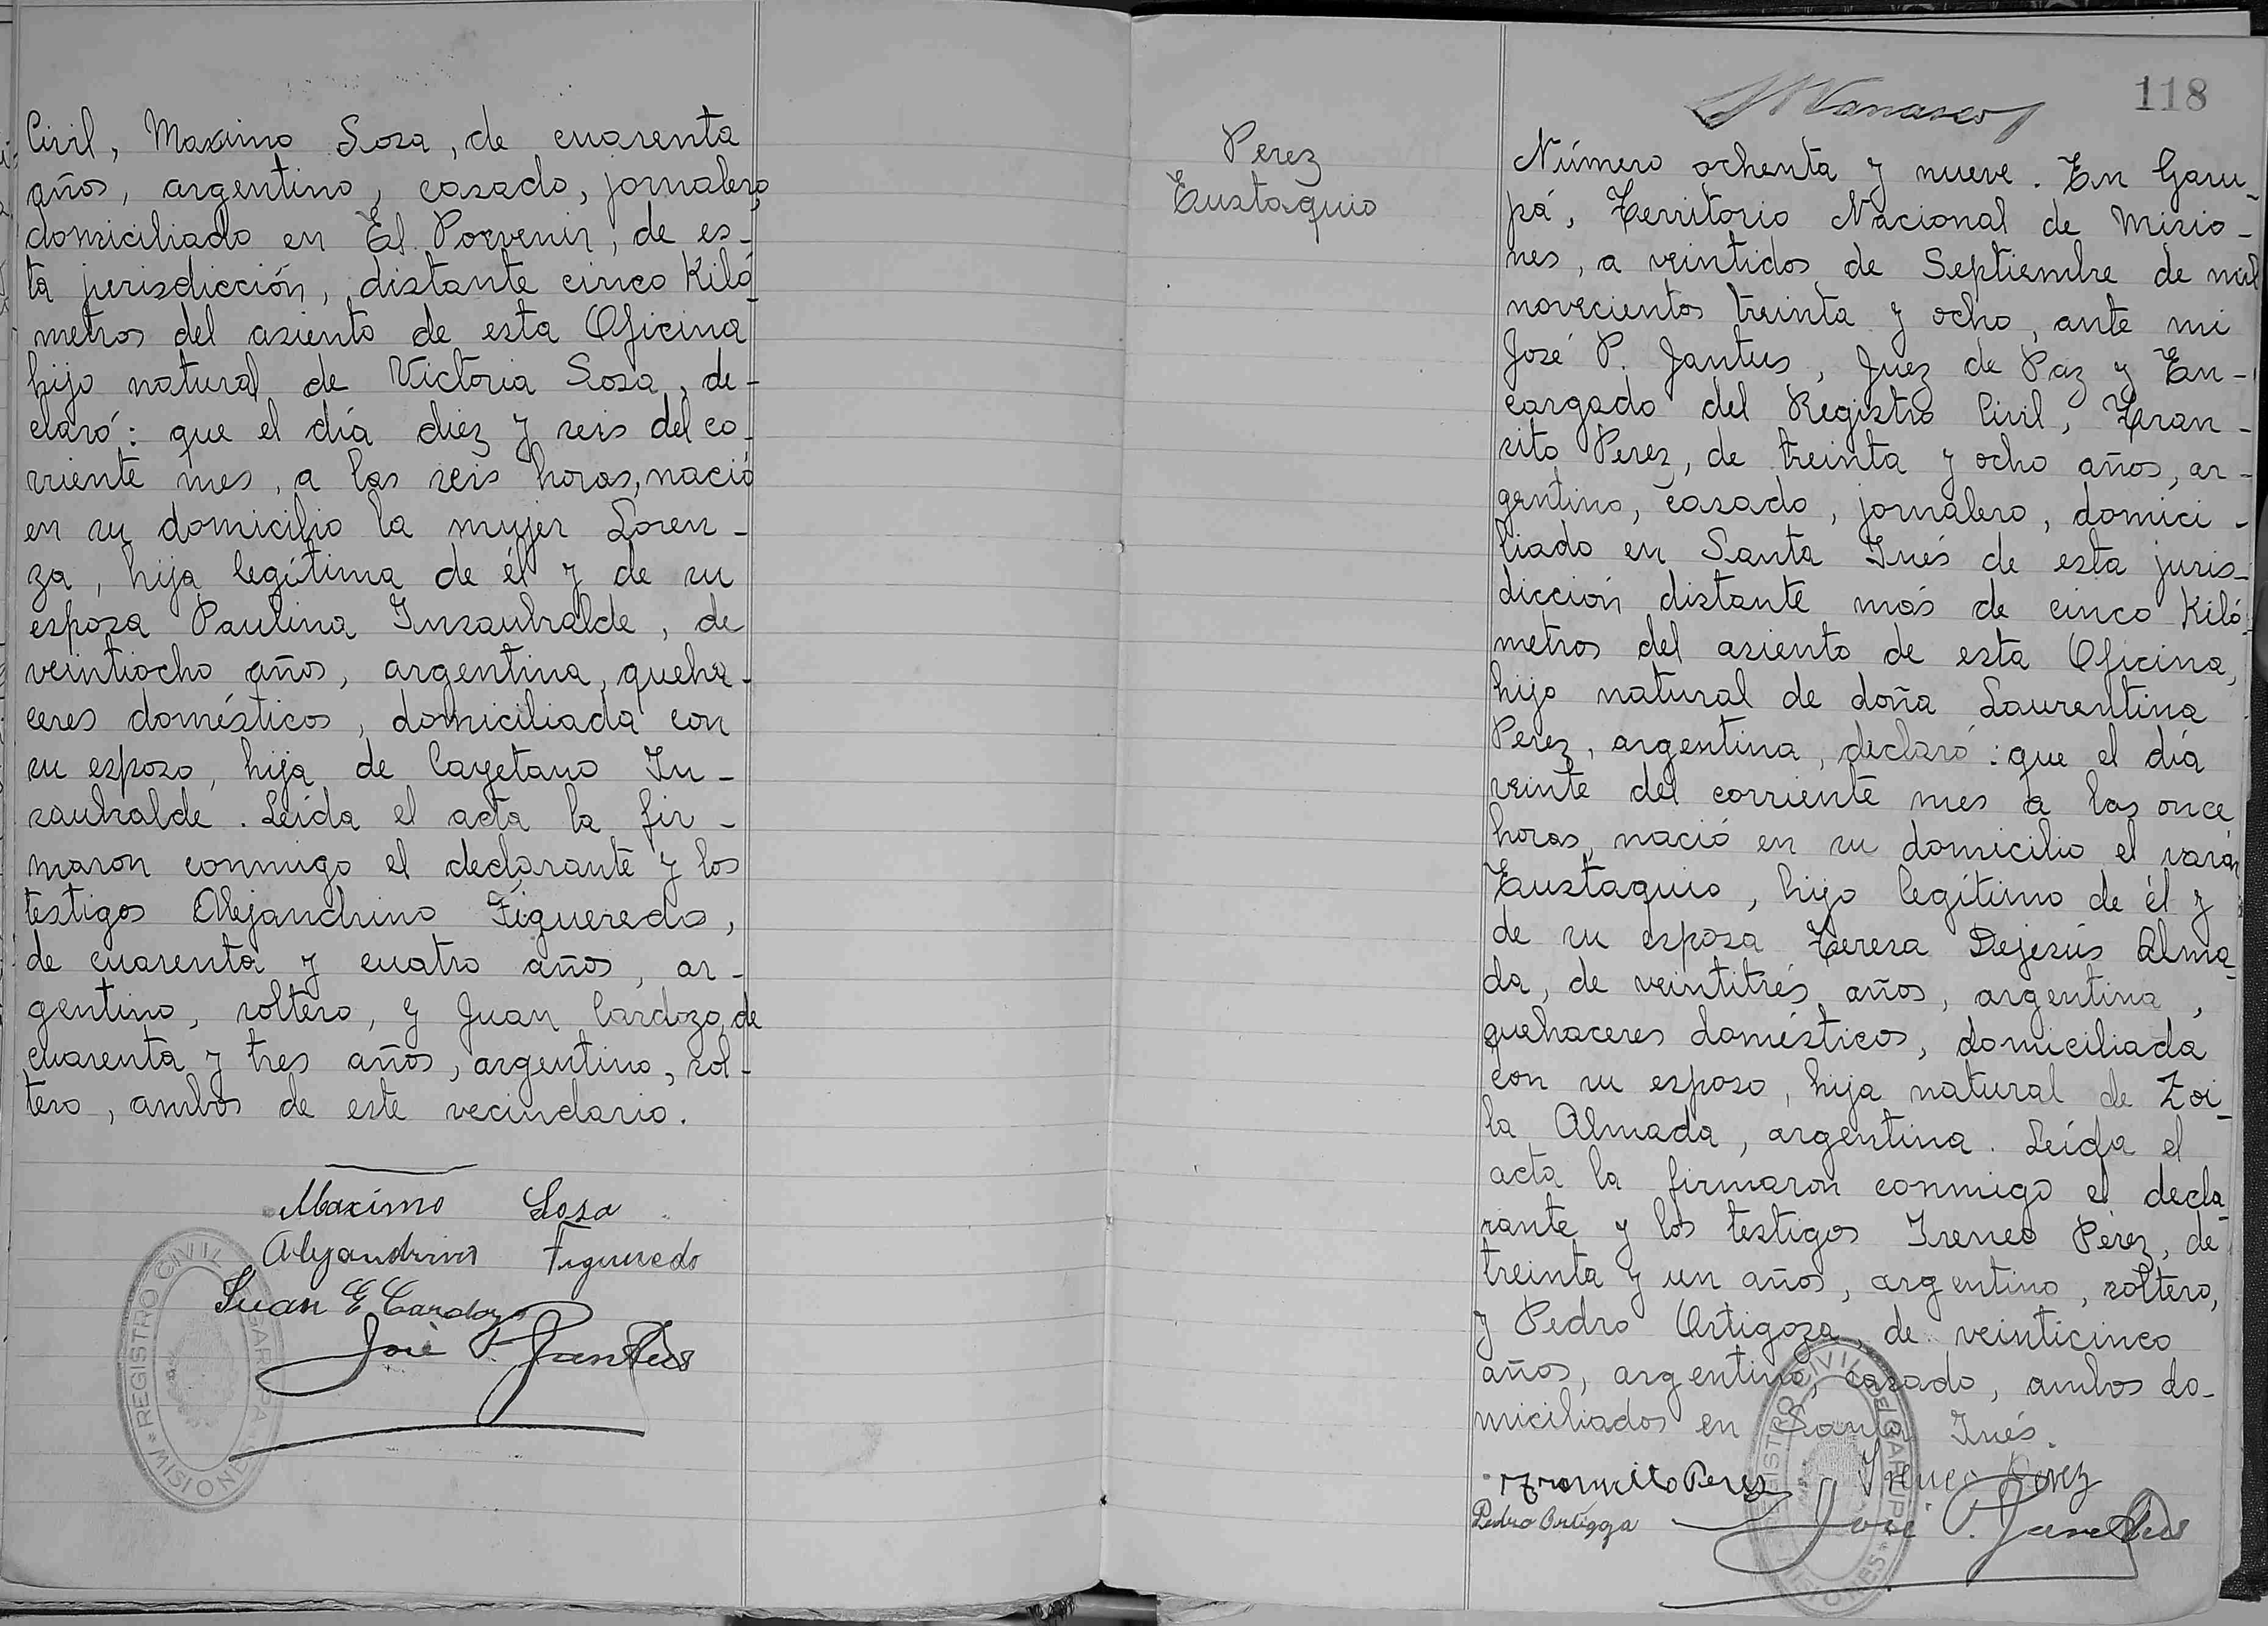 Civil, Maximo Sosa, de cuarenta
años, argentino, casado, jornalero,
domiciliado en El Porvenir, de es-
ta jurisdicción, distante cinco Kiló-
metros del asiento de esta Oficina
hijo natural de Victoria Sosa, de-
claró: que el día diez y seis del co-
rriente mes, a las seis horas, nació
en su domicilio la mujer Loren-
za, hija legítima de él y de su
esposa Paulina Insaubralde, de
veintiocho años, argentina, queha-
ceres domésticos, domiciliada con
su esposo, hija de Cayetano In-
saubralde. Leída el acta la fir-
maron conmigo el declarante y los
testigos Alejandrino Figueredo,
de cuarenta y cuatro años, ar-
gentino, soltero, y Juan Cardozo, de
cuarenta y tres años, argentino, sol-
tero, ambos de este vecindario.
Maximo Sosa
Alejandrino Figueredo
Juan E Cardozo
José P. Jantus
REGISTRO CIVIL DE GARUPA
* MISIONES *
118
Perez
Eustaquio
Número ochenta y nueve. En Garu-
pá, Territorio Nacional de Misio-
nes, a veintidos de Septiembre de mil
novecientos treinta y ocho, ante mi
José P. Jantus, Juez de Paz y En-
cargado del Registro Civil, Tran-
sito Perez, de treinta y ocho años, ar-
gentino, casado, jornalero, domici-
liado en Santa Inés de esta juris-
dicción distante más de cinco Kiló-
metros del asiento de esta Oficina,
hijo natural de doña Laurentina
Perez, argentina, declaró: que el día
veinte del corriente mes a las once
horas, nació en su domicilio el varón
Eustaquio, hijo legítimo de él y
de su esposa Teresa Dejesús Alma-
da, de veintitrés años, argentina,
quehaceres domésticos, domiciliada
con su esposo, hija natural de Zoi-
la Almada, argentina. Leída el
acta la firmaron conmigo el decla-
rante y los testigos Ireneo Pérez, de
treinta y un años, argentino, soltero,
y Pedro Ortigoza, de veinticinco
años, argentino, casado, ambos do-
miciliados en Santa Inés.
Transito Perez Ireneo Perez
Pedro Ortigoza José P. Jantus
REGISTRO CIVIL DE GARUPA
* MISIONES *